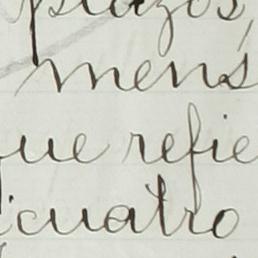 plazos,
mens
que refie
cuatro